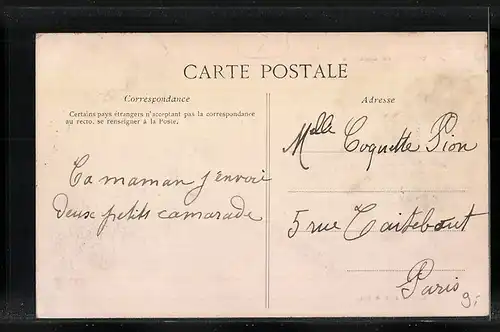 CARTE POSTALE
Correspondance
Certains pays étrangers n'acceptant pas la correspondance
au recto, se renseigner à la Poste.
Ta maman j'envoie
deux petits camarade
Adresse
Melle Coquette Pion
5 rue Taitebout
Paris